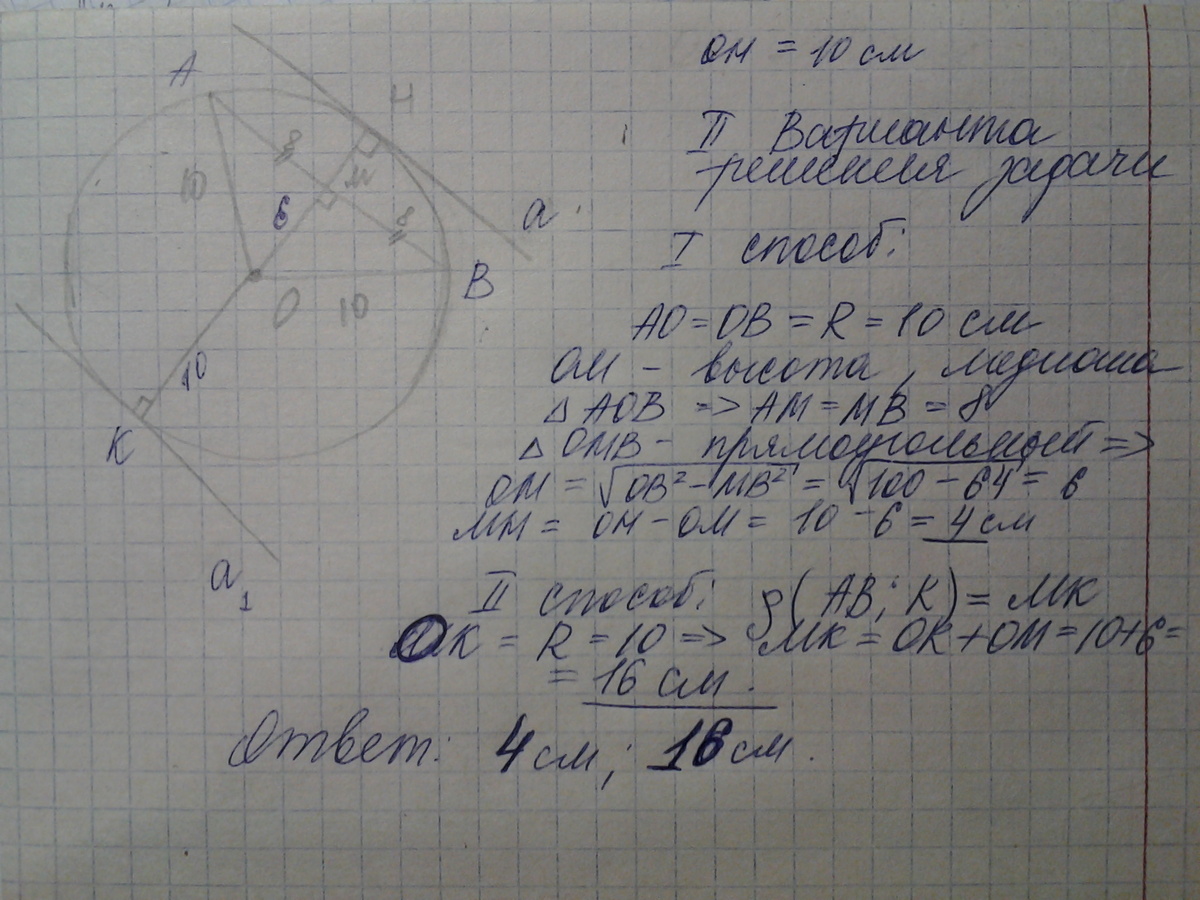 A
H
8
10
M
6
8
a
B
O
10
10
K
a₁
OH = 10 см
II Варианта
решения задачи
I способ:
AO = OB = R = 10 см
OM - высота, медиана
△ AOB => AM = MB = 8
△ OMB - прямоугольный =>
OM = √OB² - MB² = √100 - 64 = 6
MH = OH - OM = 10 - 6 = 4 см
II способ: ρ(AB; K) = MK
OK = R = 10 => MK = OK + OM = 10 + 6 =
= 16 см.
Ответ: 4 см; 16 см.